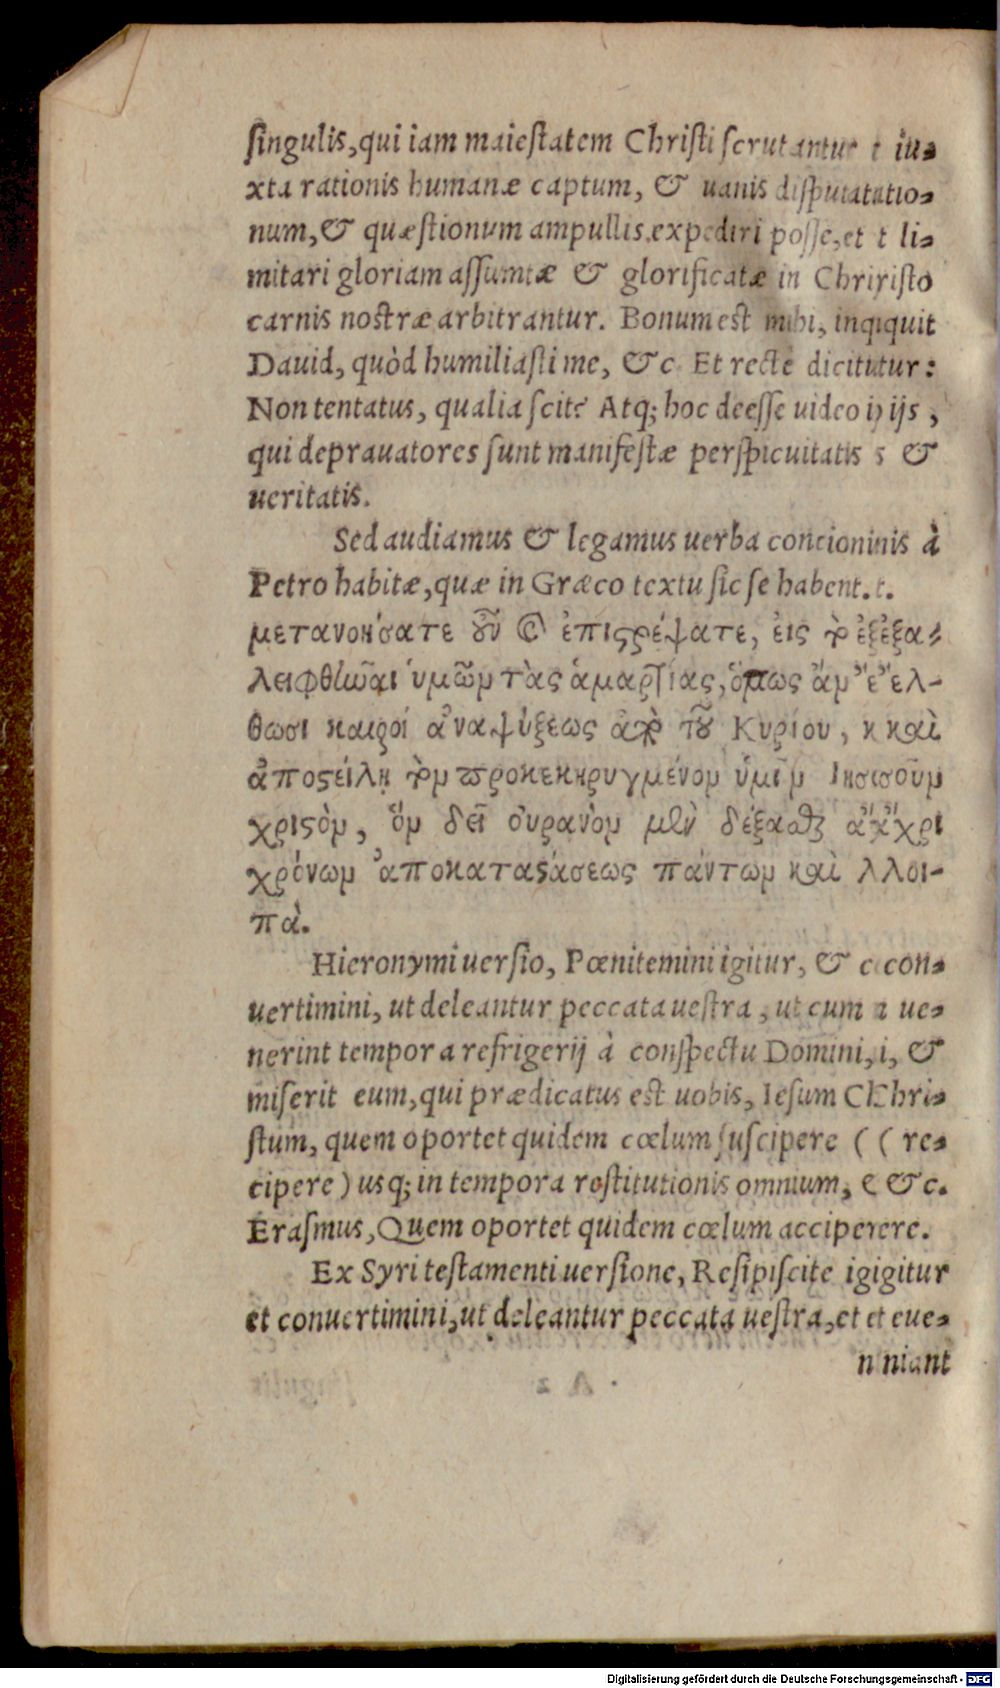 singulis, qui iam maiestatem Christi scrutantur iu-
xta rationis humanæ captum, & uanis disputatio-
num, & quæstionum ampullis expediri posse, et li-
mitari gloriam assumtæ & glorificatæ in Christo
carnis nostræ arbitrantur. Bonum est mihi, inquit
Dauid, quòd humiliasti me, &c. Et recte dicitur:
Non tentatus, qualia scit? Atq; hoc deesse uideo ijs,
qui deprauatores sunt manifestæ perspicuitatis &
ueritatis.
Sed audiamus & legamus uerba concionis à
Petro habitæ, quæ in Græco textu sic se habent.
μετανοήσατε οὖν καὶ ἐπιστρέψατε, εἰς τὸ ἐξα-
λειφθῆναι ὑμῶν τὰς ἁμαρτίας, ὅπως ἂν ἔλ-
θωσι καιροί ἀναψύξεως ἀπὸ τοῦ Κυρίου, καὶ
ἀποστείλῃ τὸν προκεκηρυγμένον ὑμῖν Ιησοῦν
χριστὸν, ὃν δεῖ οὐρανὸν μὲν δέξασθαι ἄχρι
χρόνων ἀποκαταστάσεως πάντων καὶ λοι-
πὰ.
Hieronymi uersio, Pœnitemini igitur, & con-
uertimini, ut deleantur peccata uestra, ut cum ue-
nerint tempora refrigerij à conspectu Domini, &
miserit eum, qui prædicatus est uobis, Iesum Chri-
stum, quem oportet quidem cœlum suscipere ( re-
cipere) usq; in tempora restitutionis omnium, &c.
Erasmus, Quem oportet quidem cœlum accipere.
Ex Syri testamenti uersione, Resipiscite igitur
et conuertimini, ut deleantur peccata uestra, et eue-
niant
Digitalisierung gefördert durch die Deutsche Forschungsgemeinschaft - DFG